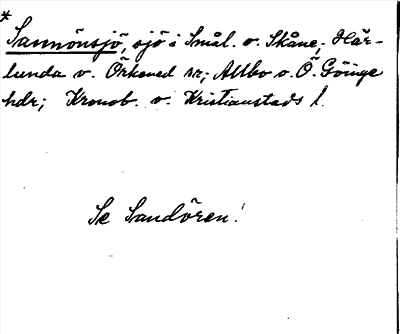 *
Sannönsjö, sjö i Smål. o. Skåne; Här-
lunda o. Örkened sn; Allbo o. Ö. Göinge
hdr; Kronob. o. Kristianstads l.
Se Sandören!